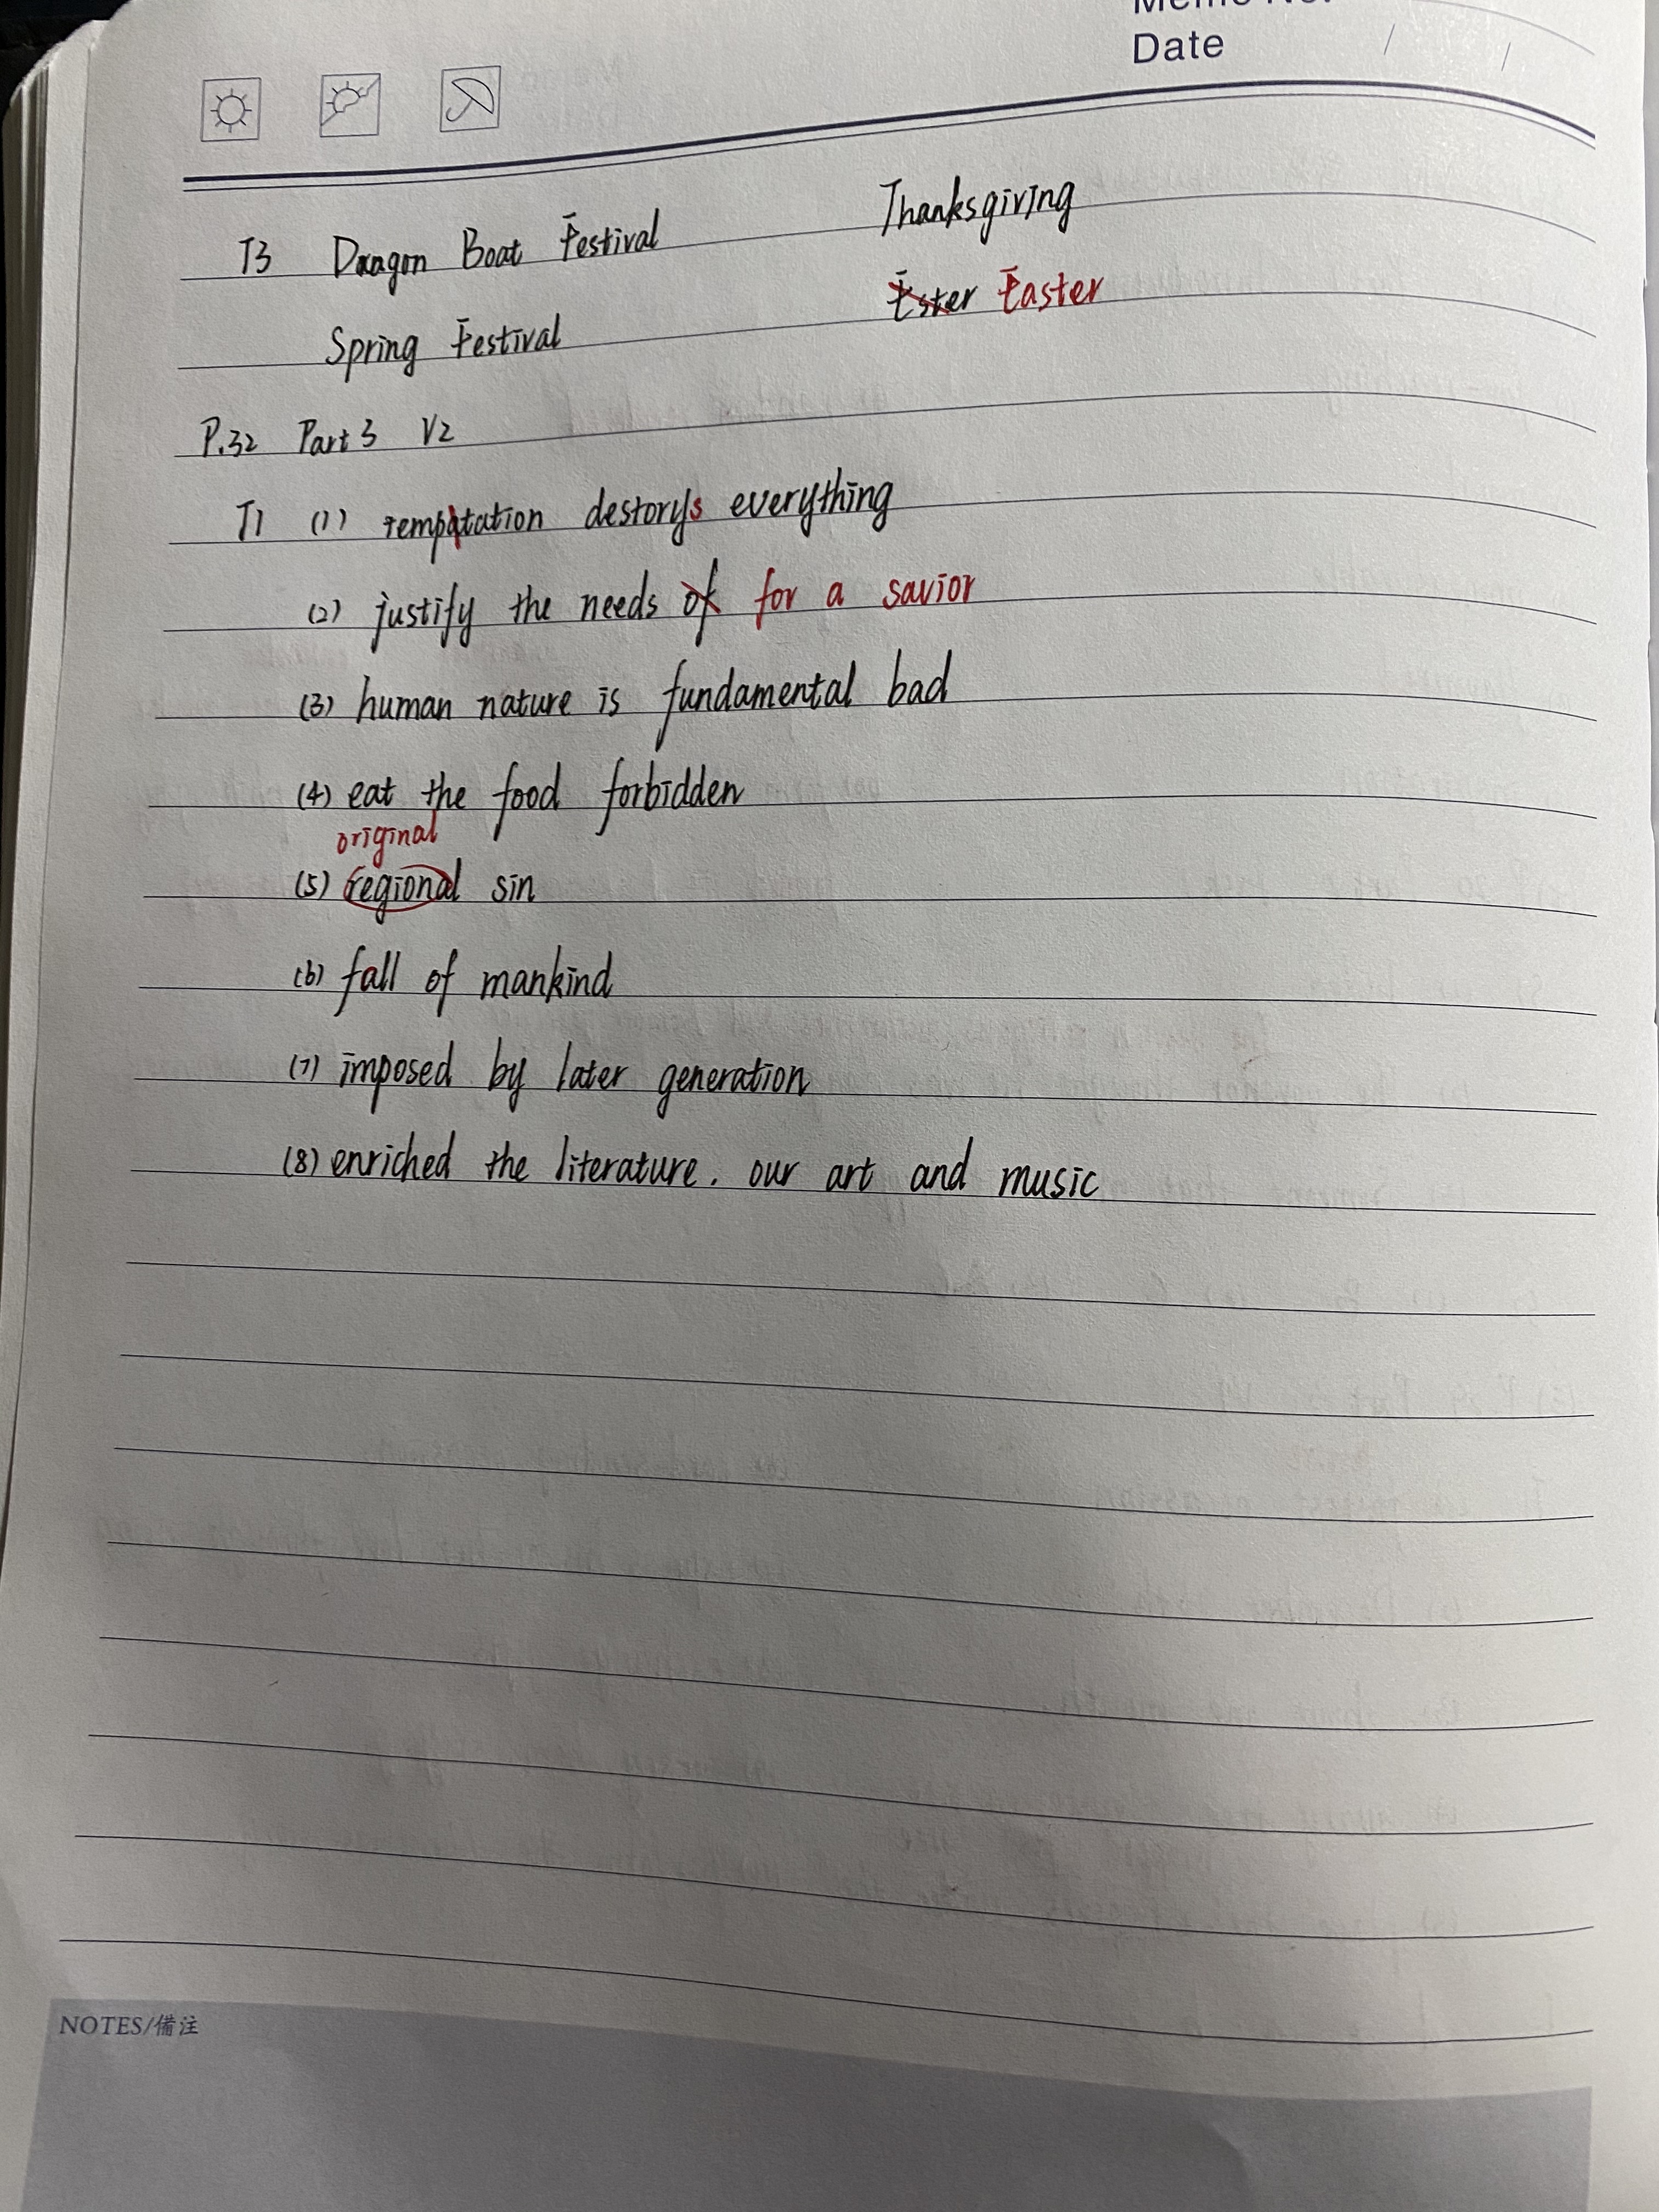 Date / /
T3 Dragon Boat Festival Thanksgiving
Spring Festival Ester Easter
P.32 Part 3 V2
T1 (1) temptation destorys everything
(2) justify the needs of for a savior
(3) human nature is fundamental bad
(4) eat the food forbidden
original
(5) regional sin
(6) fall of mankind
(7) imposed by later generation
(8) enriched the literature. our art and music
NOTES/備注